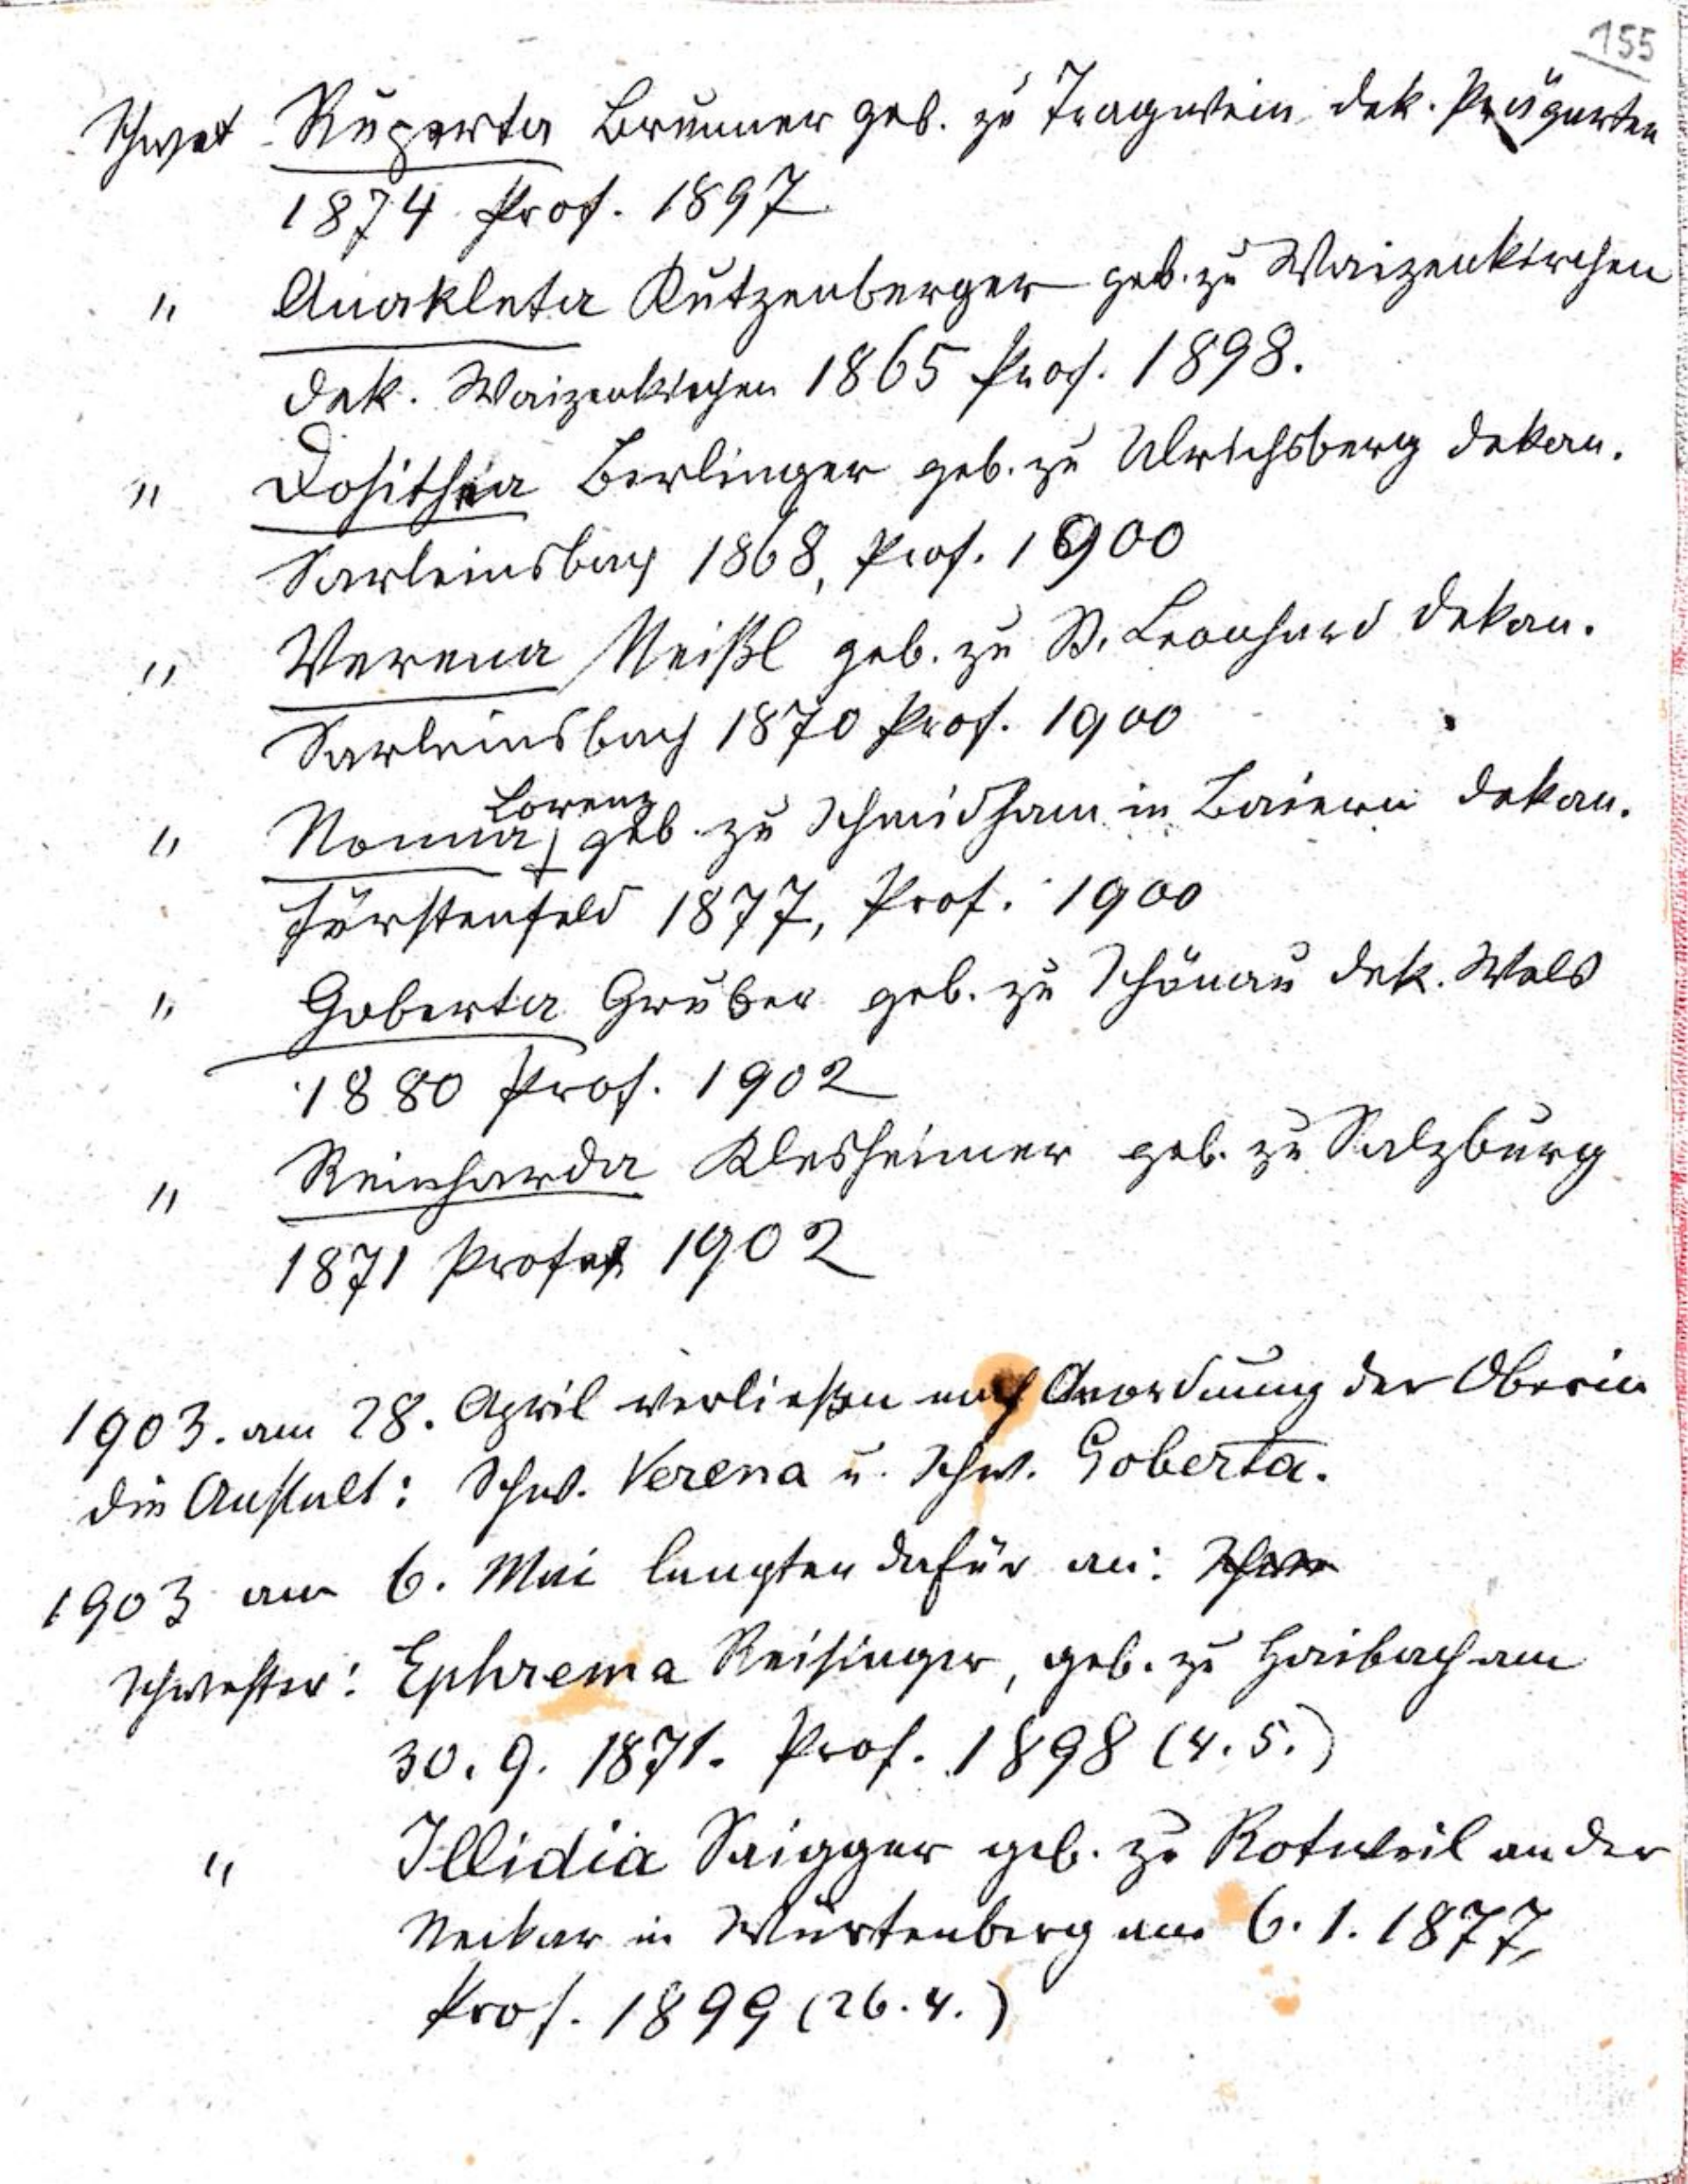 155
Schwst Ruperta Brunner geb. zu Tragwein dek. Prägarten
1874 Prof. 1897
" Anakleta Kutzenberger geb. zu Waizenkirchen
dek. Waizenkirchen 1865 Prof. 1898.
" Dosithea Berlinger geb. zu Ulrichsberg dekan.
Sarleinsbach 1868, Prof. 1900
" Verena Meißl geb. zu St. Leonhard dekan.
Sarleinsbach 1870 Prof. 1900
" Nonna Lorenz geb. zu Schmidham in Baiern dekan.
Fürstenfeld 1877, Prof. 1900
" Goberta Gruber geb. zu Schönau dek. Wels
1880 Prof. 1902
" Reinharda Klesheimer geb. zu Salzburg
1871 Profeß 1902
1903. am 28. April verließen nach Anordnung der Oberin
die Anstalt: Schw. Verena u. Schw. Goberta.
1903 am 6. Mai langten dafür an:
Schwester: Ephrema Reisinger, geb. zu Haibach am
30. 9. 1871. Prof. 1898 (4. 5.)
" Illidia Saigger geb. zu Rotweil an der
Neckar in Würtenberg am 6. 1. 1877,
Prof. 1899 (26. 4.)